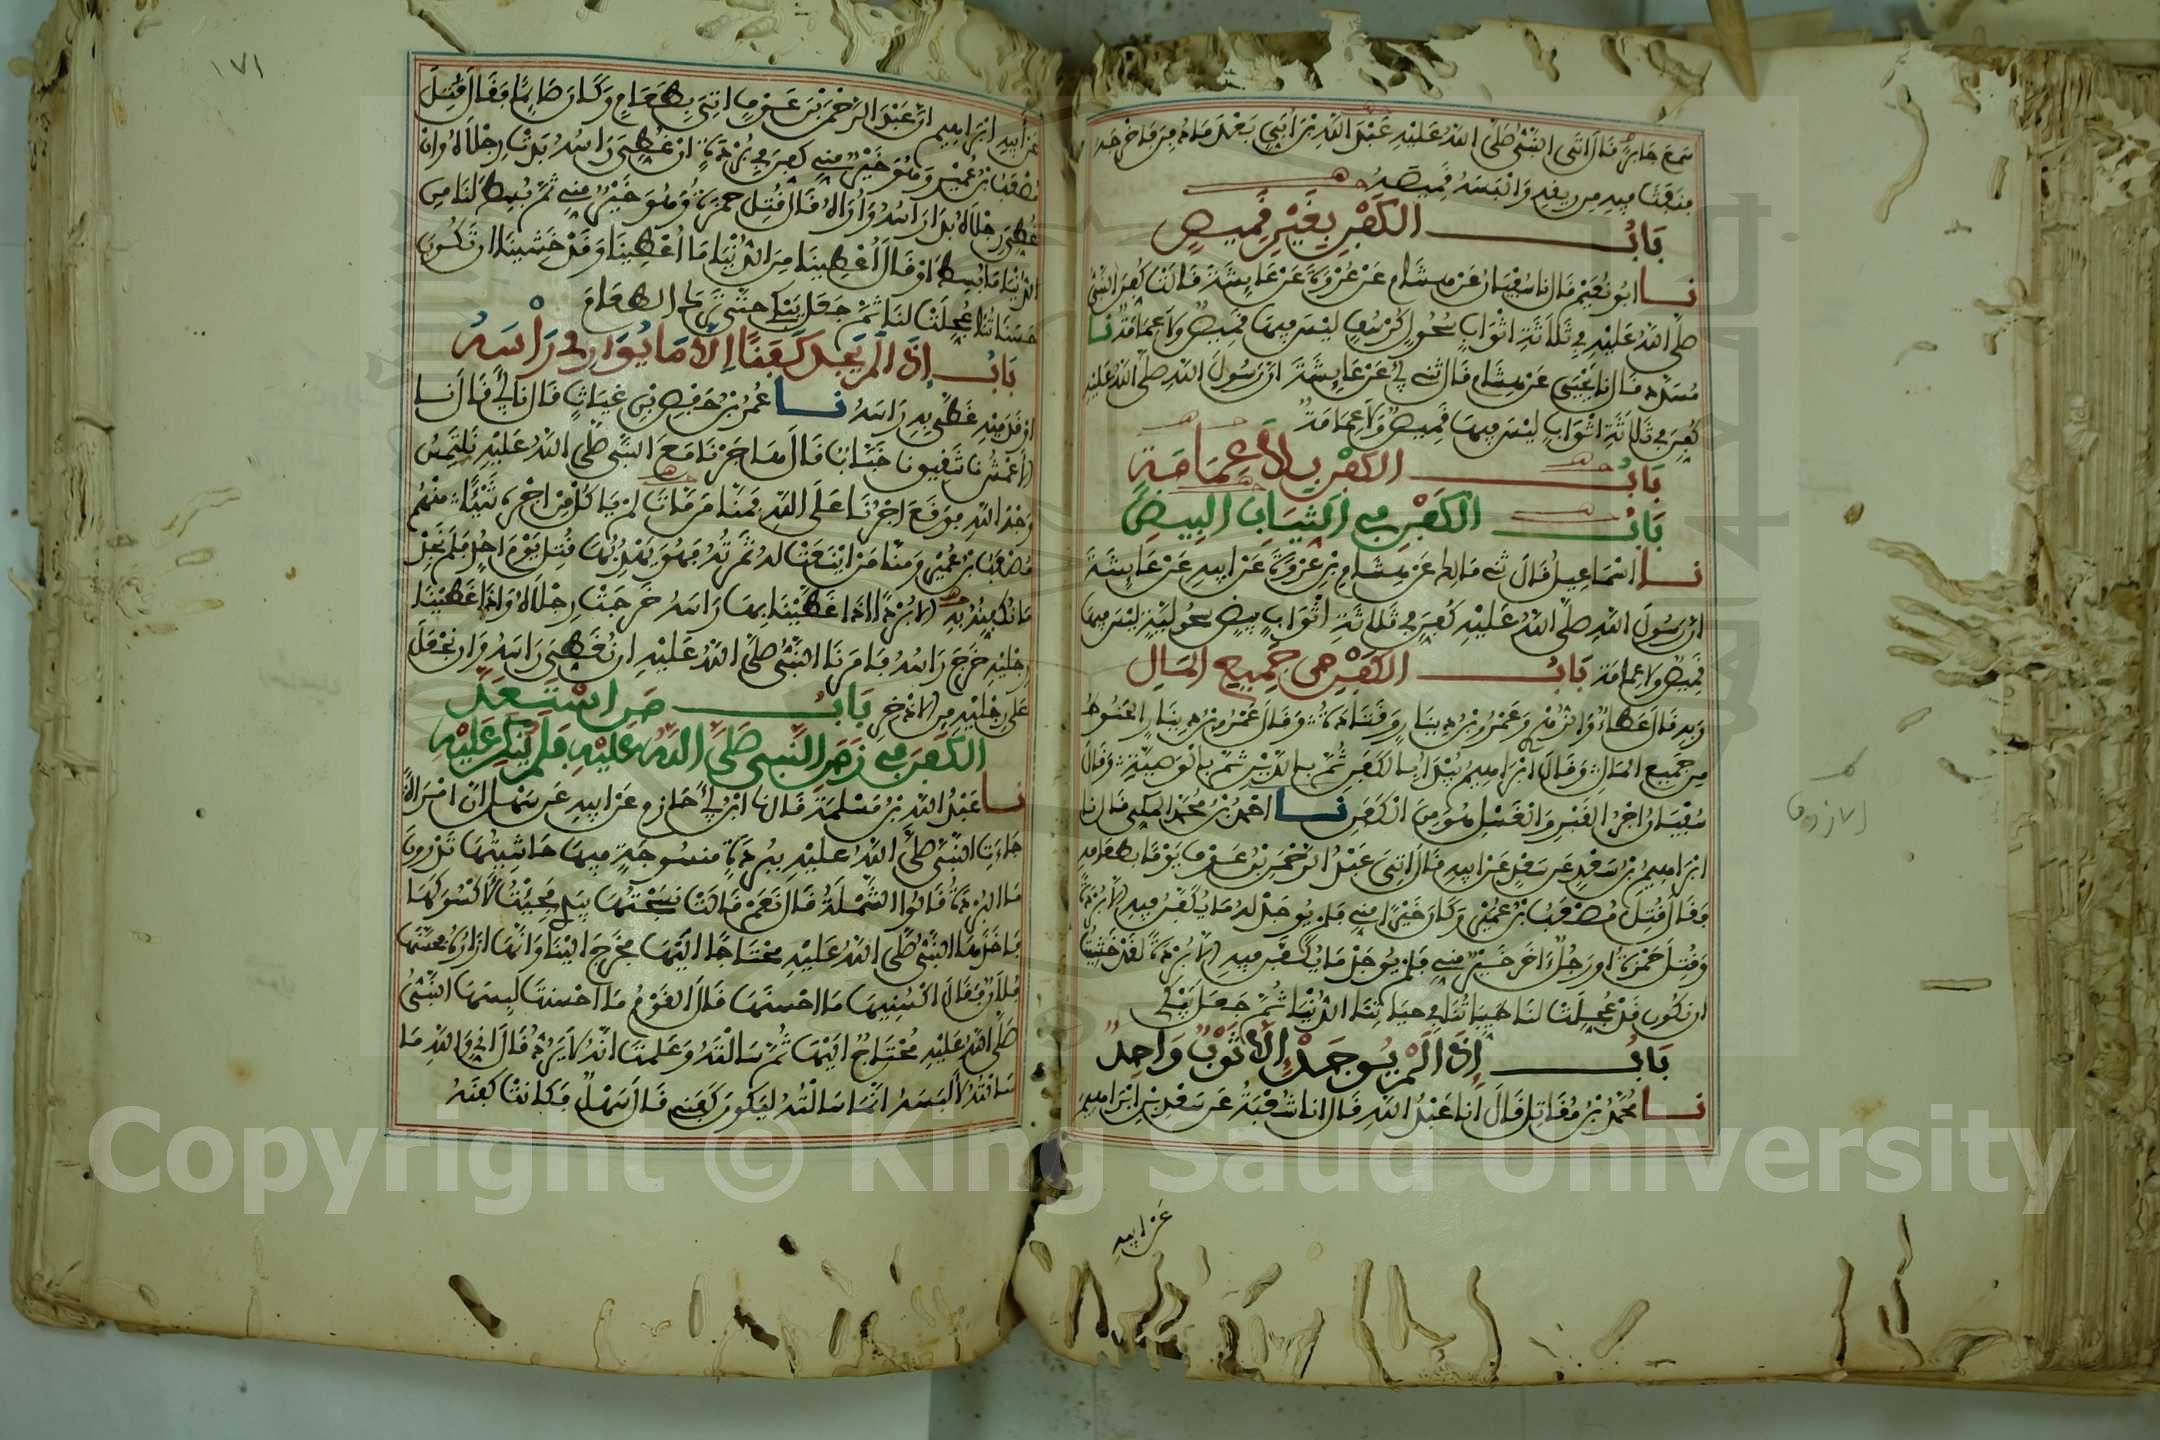 سمع جابرًا قال اتى النبي صلى الله عليه عبد الله بن ابي بعدما دفن فاخرجه
فنفث فيه من ريقه والبسه قميصه
باب الكفن بغير قميص
نا ابو نعيم قال نا سفيان عن هشام عن عروة عن عايشة قالت كفن النبي
صلى الله عليه في ثلاثة اثواب سحول كرسف ليس فيها قميص ولا عمامة نا
مسدد قال نا يحيى عن هشام قال ثني ابي عن عايشة ان رسول الله صلى الله عليه
كفن في ثلاثة اثواب ليس فيها قميص ولا عمامة
باب الكفن بلا عمامة
باب الكفن في الثياب البيض
نا اسماعيل قال ثني مالك عن هشام بن عروة عن ابيه عن عايشة
ان رسول الله صلى الله عليه كفن في ثلاثة اثواب بيض سحولية ليس فيها
قميص ولا عمامة باب الكفن من جميع المال
وبه قال عطاء والزهري وعمرو بن دينار وقتادة وقال عمرو بن دينار الحنوط
من جميع المال وقال ابراهيم يبدا بالكفن ثم بالدين ثم بالوصية وقال
سفيان اجر القبر والغسل هو من الكفن نا احمد بن محمد المكي قال نا
ابراهيم بن سعد عن سعد عن ابيه قال اتي عبد الرحمن بن عوف يوما بطعامه
فقال قتل مصعب بن عمير وكان خيرا مني فلم يوجد له ما يكفن فيه الا بردة
وقتل حمزة او رجل ءاخر خير مني فلم يوجد ما يكفن فيه الا بردة لقد خشيت
ان تكون قد عجلت لنا طيباتنا في حياتنا الدنيا ثم جعل يبكي
باب اذا لم يوجد الا ثوب واحد
نا محمد بن مقاتل قال انا عبد الله قال انا شعبة عن سعد بن ابراهيم
عن ابيه
١٧١
عن ابيه ابراهيم ان عبد الرحمن بن عوف اتي بطعام وكان صايما فقال قتل
مصعب بن عمير وهو خير مني كفن في بردة ان غطي راسه بدت رجلاه وان
غطي رجلاه بدا راسه واراه قال قتل حمزة وهو خير مني ثم بسط لنا من
الدنيا ما بسط او قال اعطينا من الدنيا ما اعطينا وقد خشينا ان تكون
حسناتنا عجلت لنا ثم جعل يبكي حتى ترك الطعام
باب اذا لم يجد كفنا الا ما يواري راسه
او قدميه غطي به راسه نا عمر بن حفص بن غياث قال نا ابي قال نا
الاعمش نا شقيق نا خباب قال هاجرنا مع النبي صلى الله عليه نلتمس
وجه الله فوقع اجرنا على الله فمنا من مات لم ياكل من اجره شيئا منهم
مصعب بن عمير ومنا من اينعت له ثمرته فهو يهدبها قتل يوم احد فلم نجد
ما نكفنه به الا بردة اذا غطينا بها راسه خرجت رجلاه واذا غطينا
رجليه خرج راسه فامرنا النبي صلى الله عليه ان نغطي راسه وان نجعل
على رجليه من الاذخر باب من استعد
الكفن في زمن النبي صلى الله عليه فلم ينكر عليه
نا عبد الله بن مسلمة قال نا ابن ابي حازم عن ابيه عن سهل ان امراة
جاءت النبي صلى الله عليه ببردة منسوجة فيها حاشيتها تدرون
ما البردة قالوا الشملة قال نعم قالت نسجتها بيدي فجيت لاكسوكها
فاخذها النبي صلى الله عليه محتاجا اليها فخرج الينا وانها ازاره فحسنها
فلان فقال اكسنيها ما احسنها قال القوم ما احسنت لبسها النبي
صلى الله عليه محتاج اليها ثم سالته وعلمت انه لا يرد قال اني والله ما
سالته لالبسه انما سالته ليكون كفني قال سهل فكانت كفنه
Copyright © King Saud University